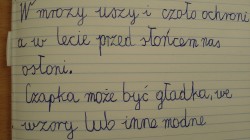 W mrozy uszy i czoło ochroni
a w lecie przed słońcem nas
osłoni.
Czapka może być gładka, we
wzory lub inne modne